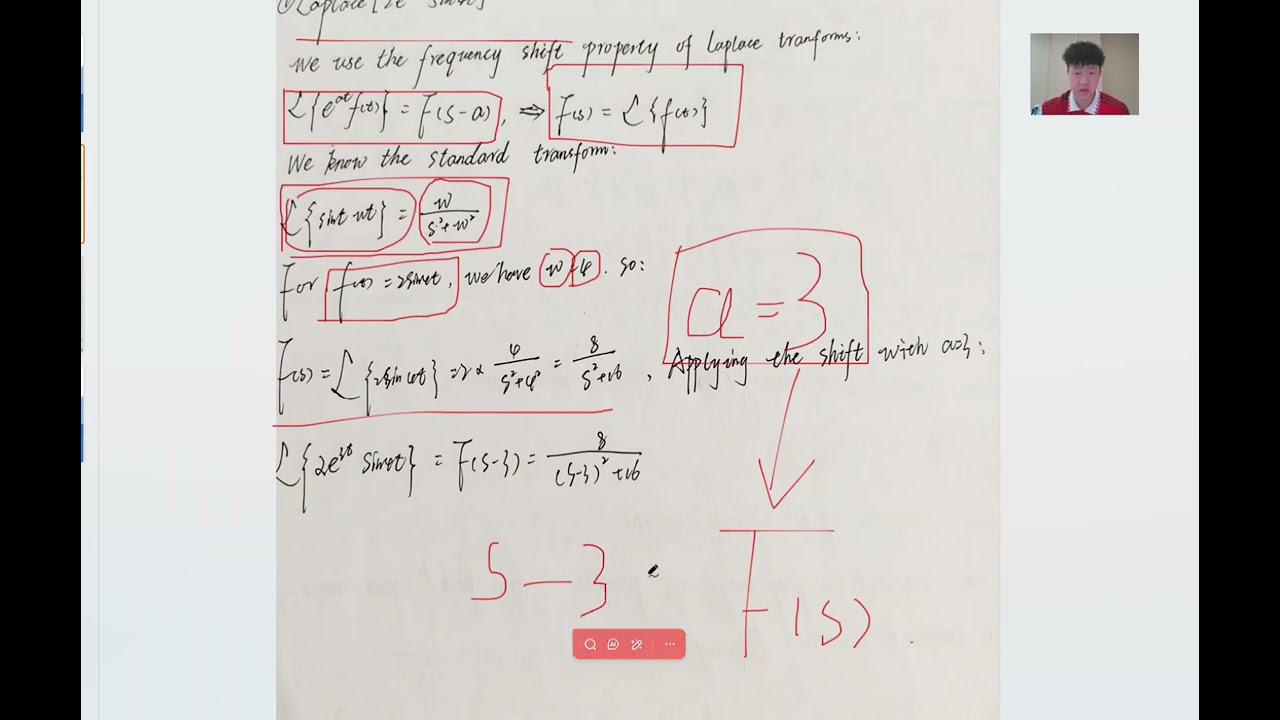 ① Laplace [2e sin4t]
We use the frequency shift property of Laplace tranforms:
ℒ{e^{at}f(t)} = F(s-a), ⇒ F(s) = ℒ{f(t)}
We know the standard transform:
ℒ{sint wt} = w/(s²+w²)
For f(t) = 2sin4t, we have w=4. so:
a=3
F(s) = ℒ{2sin4t} = 2 × 4/(s²+4²) = 8/(s²+16), Applying the shift with a=3:
ℒ{2e^{3t} sin4t} = F(s-3) = 8/((s-3)²+16)
s-3
F(s)